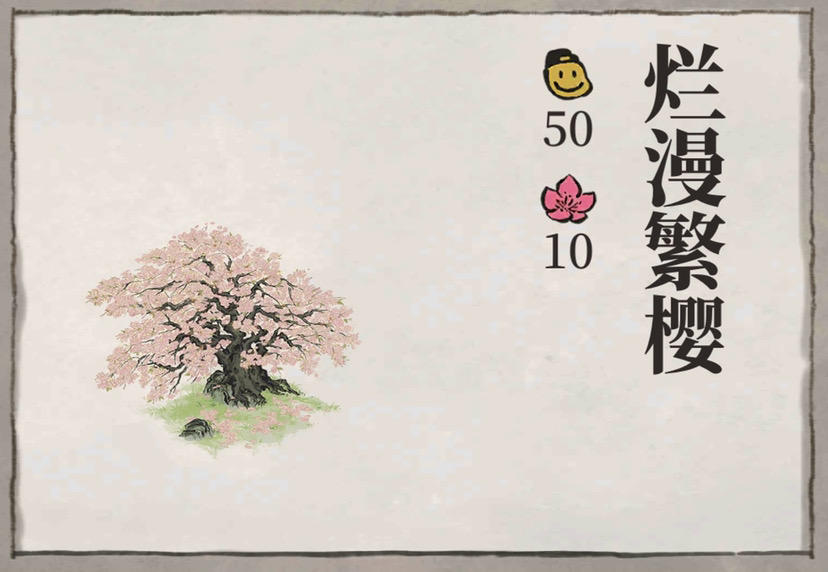 烂漫繁樱
50
10